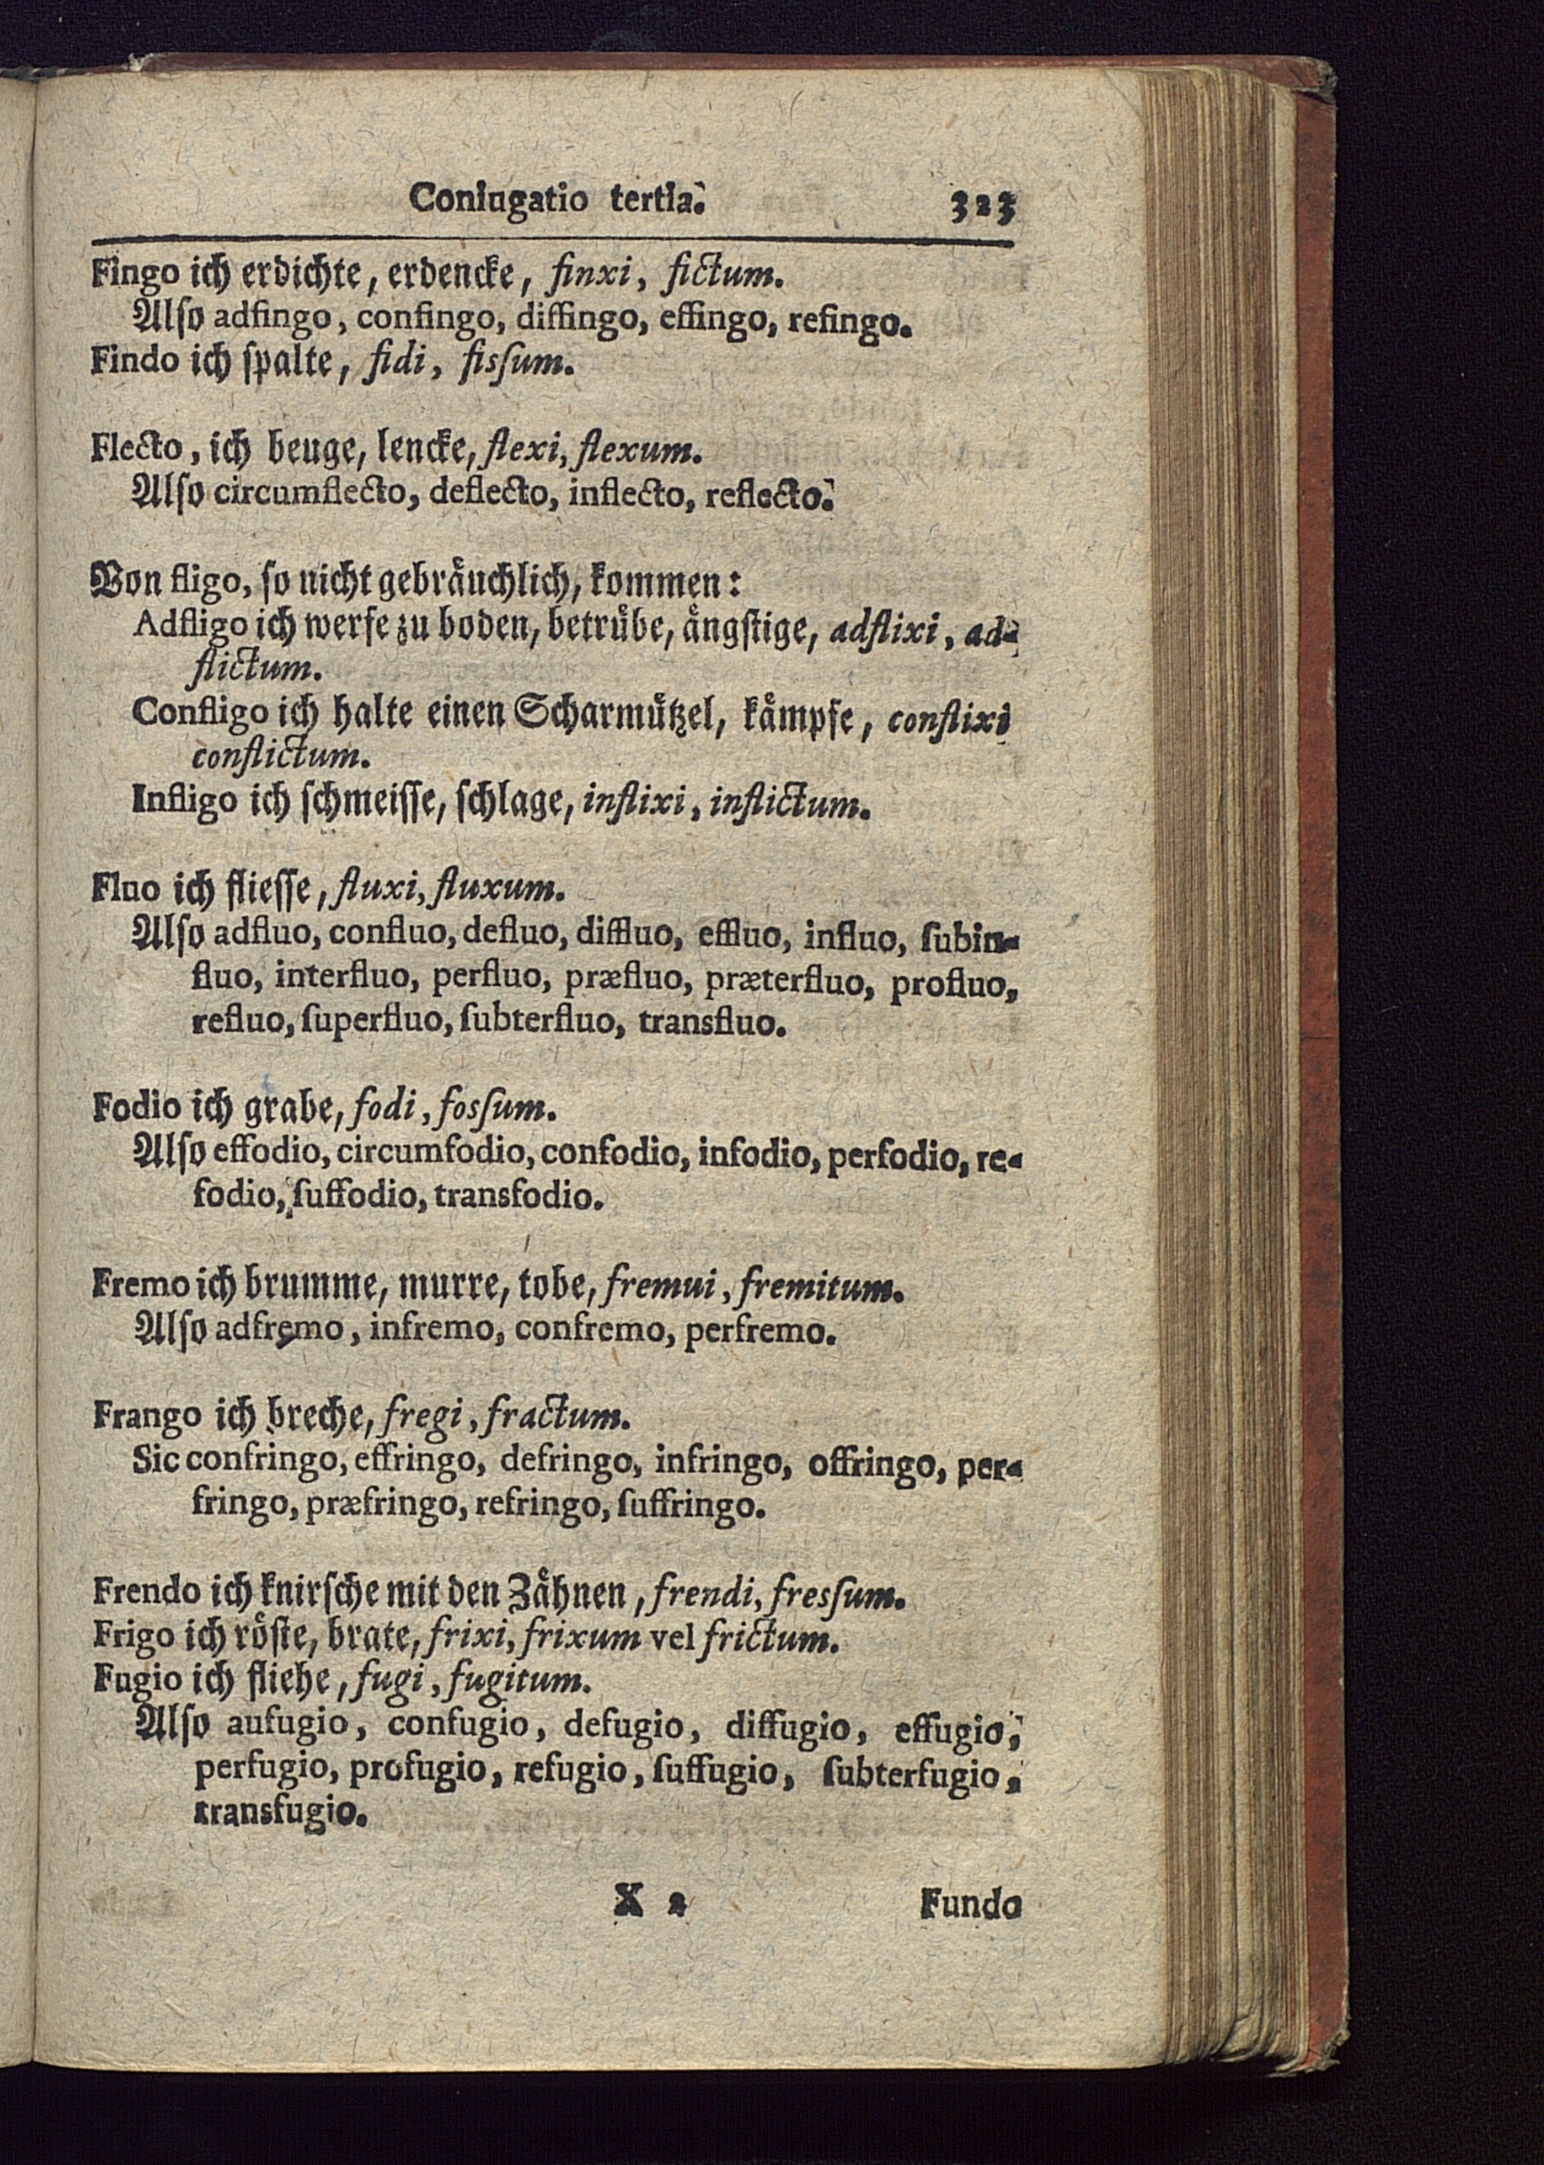 Coniugatio tertia. 323
Fingo ich erdichte, erdencke, finxi, fictum.
Also adfingo, confingo, diffingo, effingo, refingo.
Findo ich ſpalte, fidi, fisſum.
Flecto, ich beuge, lencke, flexi, flexum.
Also circumflecto, deflecto, inflecto, reflecto.
Von fligo, ſo nicht gebraͤuchlich, kommen:
Adfligo ich werfe zu boden, betruͤbe, aͤngſtige, adflixi, ad-
flictum.
Confligo ich halte einen Scharmuͤtzel, kaͤmpfe, conflixi
conflictum.
Infligo ich ſchmeiſſe, ſchlage, inflixi, inflictum.
Fluo ich flieſſe, fluxi, fluxum.
Alſo adfluo, confluo, defluo, diffluo, effluo, influo, ſubin-
fluo, interfluo, perfluo, præfluo, præterfluo, profluo,
refluo, ſuperfluo, ſubterfluo, transfluo.
Fodio ich grabe, fodi, fosſum.
Alſo effodio, circumfodio, confodio, infodio, perfodio, re-
fodio, ſuffodio, transfodio.
Fremo ich brumme, murre, tobe, fremui, fremitum.
Alſo adfremo, infremo, confremo, perfremo.
Frango ich breche, fregi, fractum.
Sic confringo, effringo, defringo, infringo, offringo, per-
fringo, præfringo, refringo, ſuffringo.
Frendo ich knirſche mit den Zaͤhnen, frendi, fresſum.
Frigo ich roͤſte, brate, frixi, frixum vel frictum.
Fugio ich fliehe, fugi, fugitum.
Alſo aufugio, confugio, defugio, diffugio, effugio,
perfugio, profugio, refugio, ſuffugio, ſubterfugio,
transfugio.
X 2 Fundo